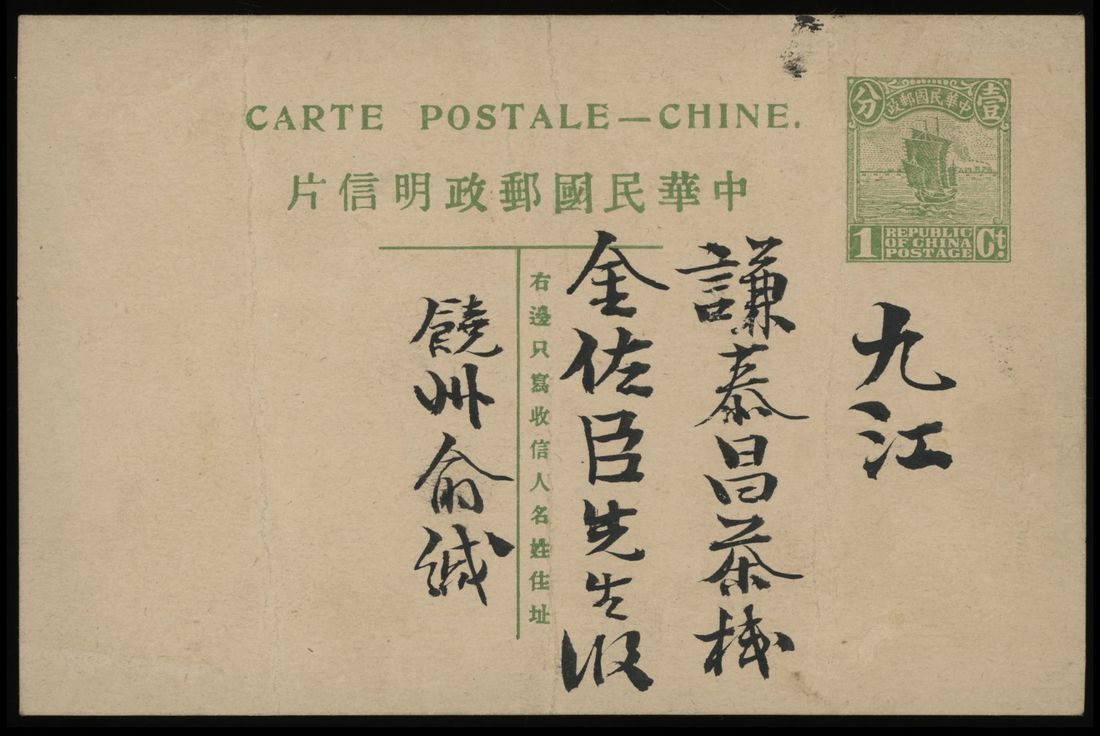 CARTE POSTALE—CHINE.
中華民國郵政明信片
中華民國郵政
壹
分
1
REPUBLIC
OF CHINA
POSTAGE
Ct.
九江
謙泰昌茶棧
金佐臣先生收
右邊只寫收信人名姓住址
饒州俞緘